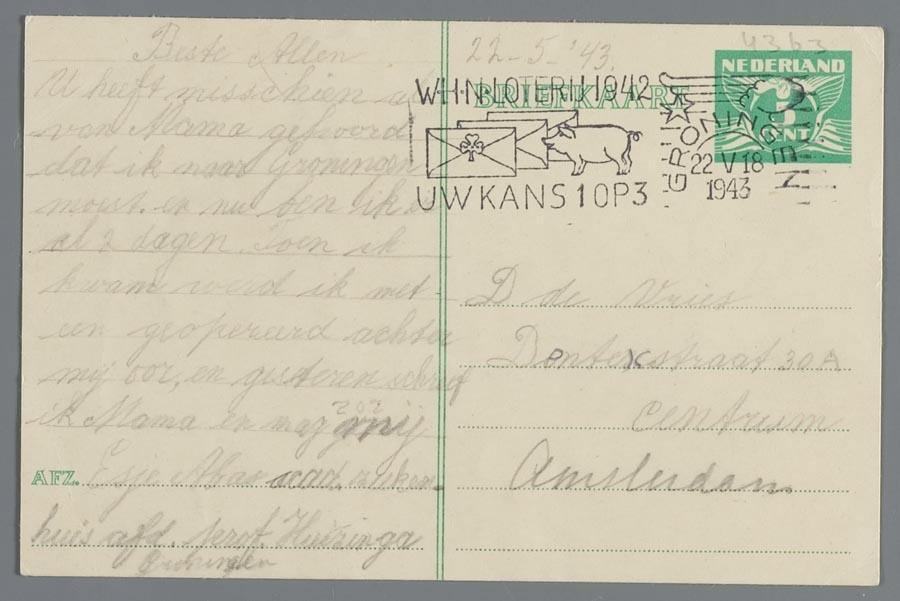 Beste Allen
U heeft misschien al
van Mama gehoord
dat ik naar Groningen
moest. en nu ben ik er
al 2 dagen. Toen ik
kwam werd ik met
een geopereerd achter
mij oor, en gisteren schreef
ik Mama en mag mij
AFZ. Abas acad. zieken-
huis afd. prof. Huizinga
Groningen
4363
22-5-'43.
BRIEFKAART
NEDERLAND
CENT
W.H.N. LOTERIJ 1942
UW KANS 1 OP 3
GRONINGEN
22 V 18
1943
D de Vries
Dentexstraat 30A
Centrum
Amsterdam